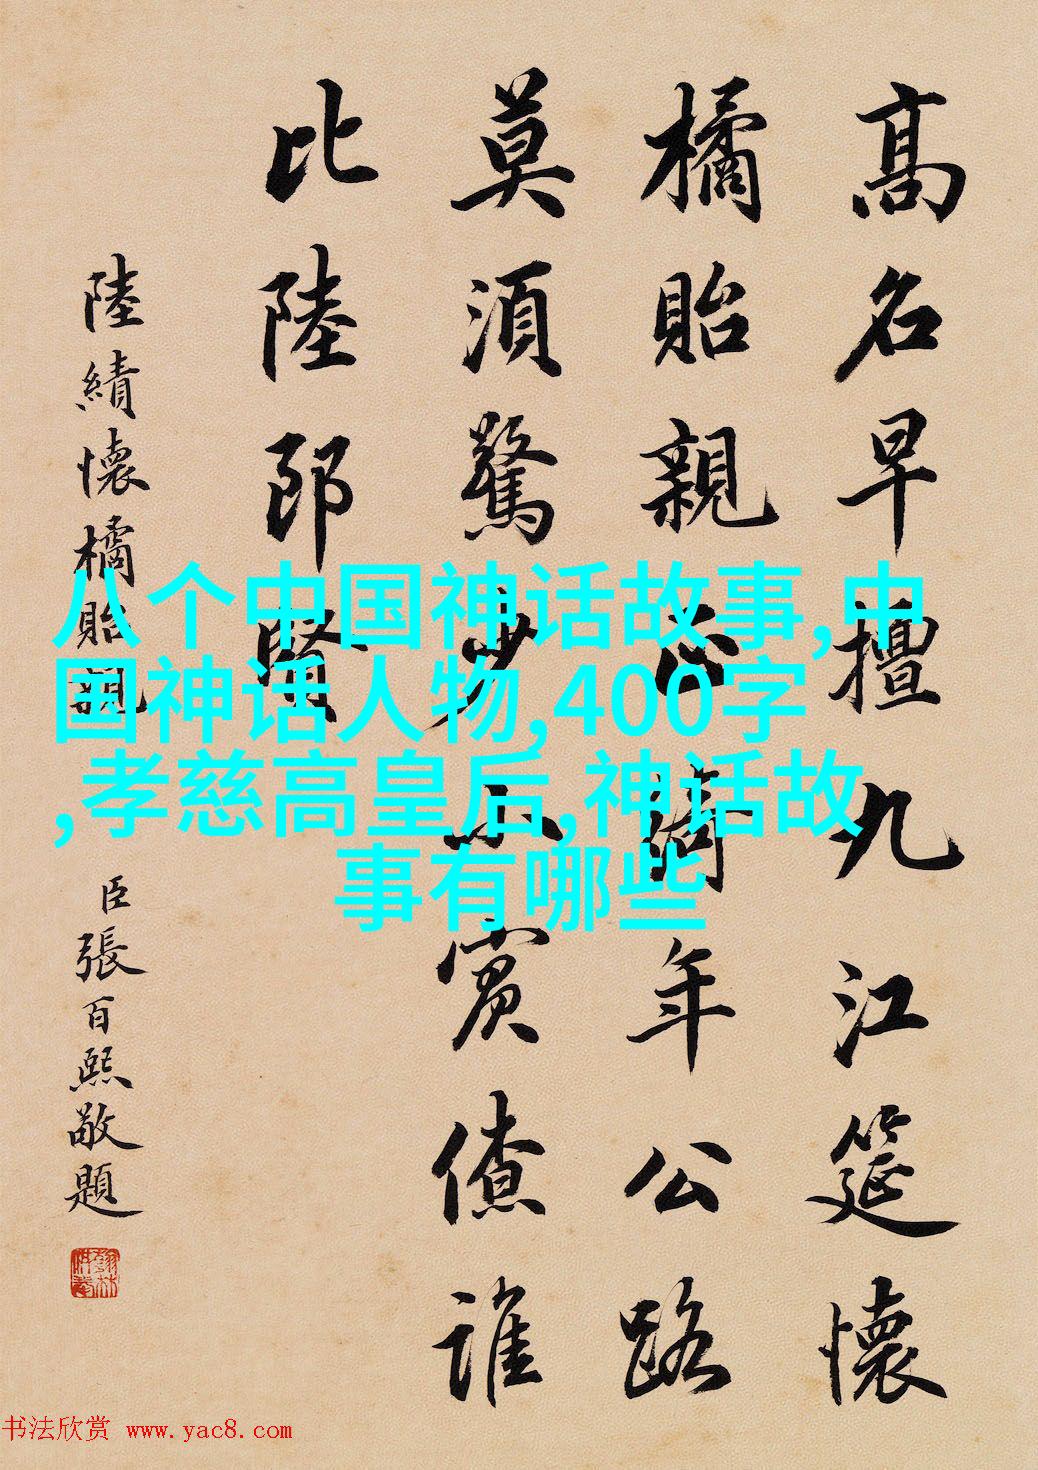 髙名早擅九江筵懷
橘貽親正綺年公路
莫湏驚少小賓僚誰
比陸郎賢
陸績懷橘貽親
臣張百熙敬題
八个中国神话故事,中
国神话人物,400字
,孝慈高皇后,神话故
事有哪些
书法欣赏 www.yac8.com